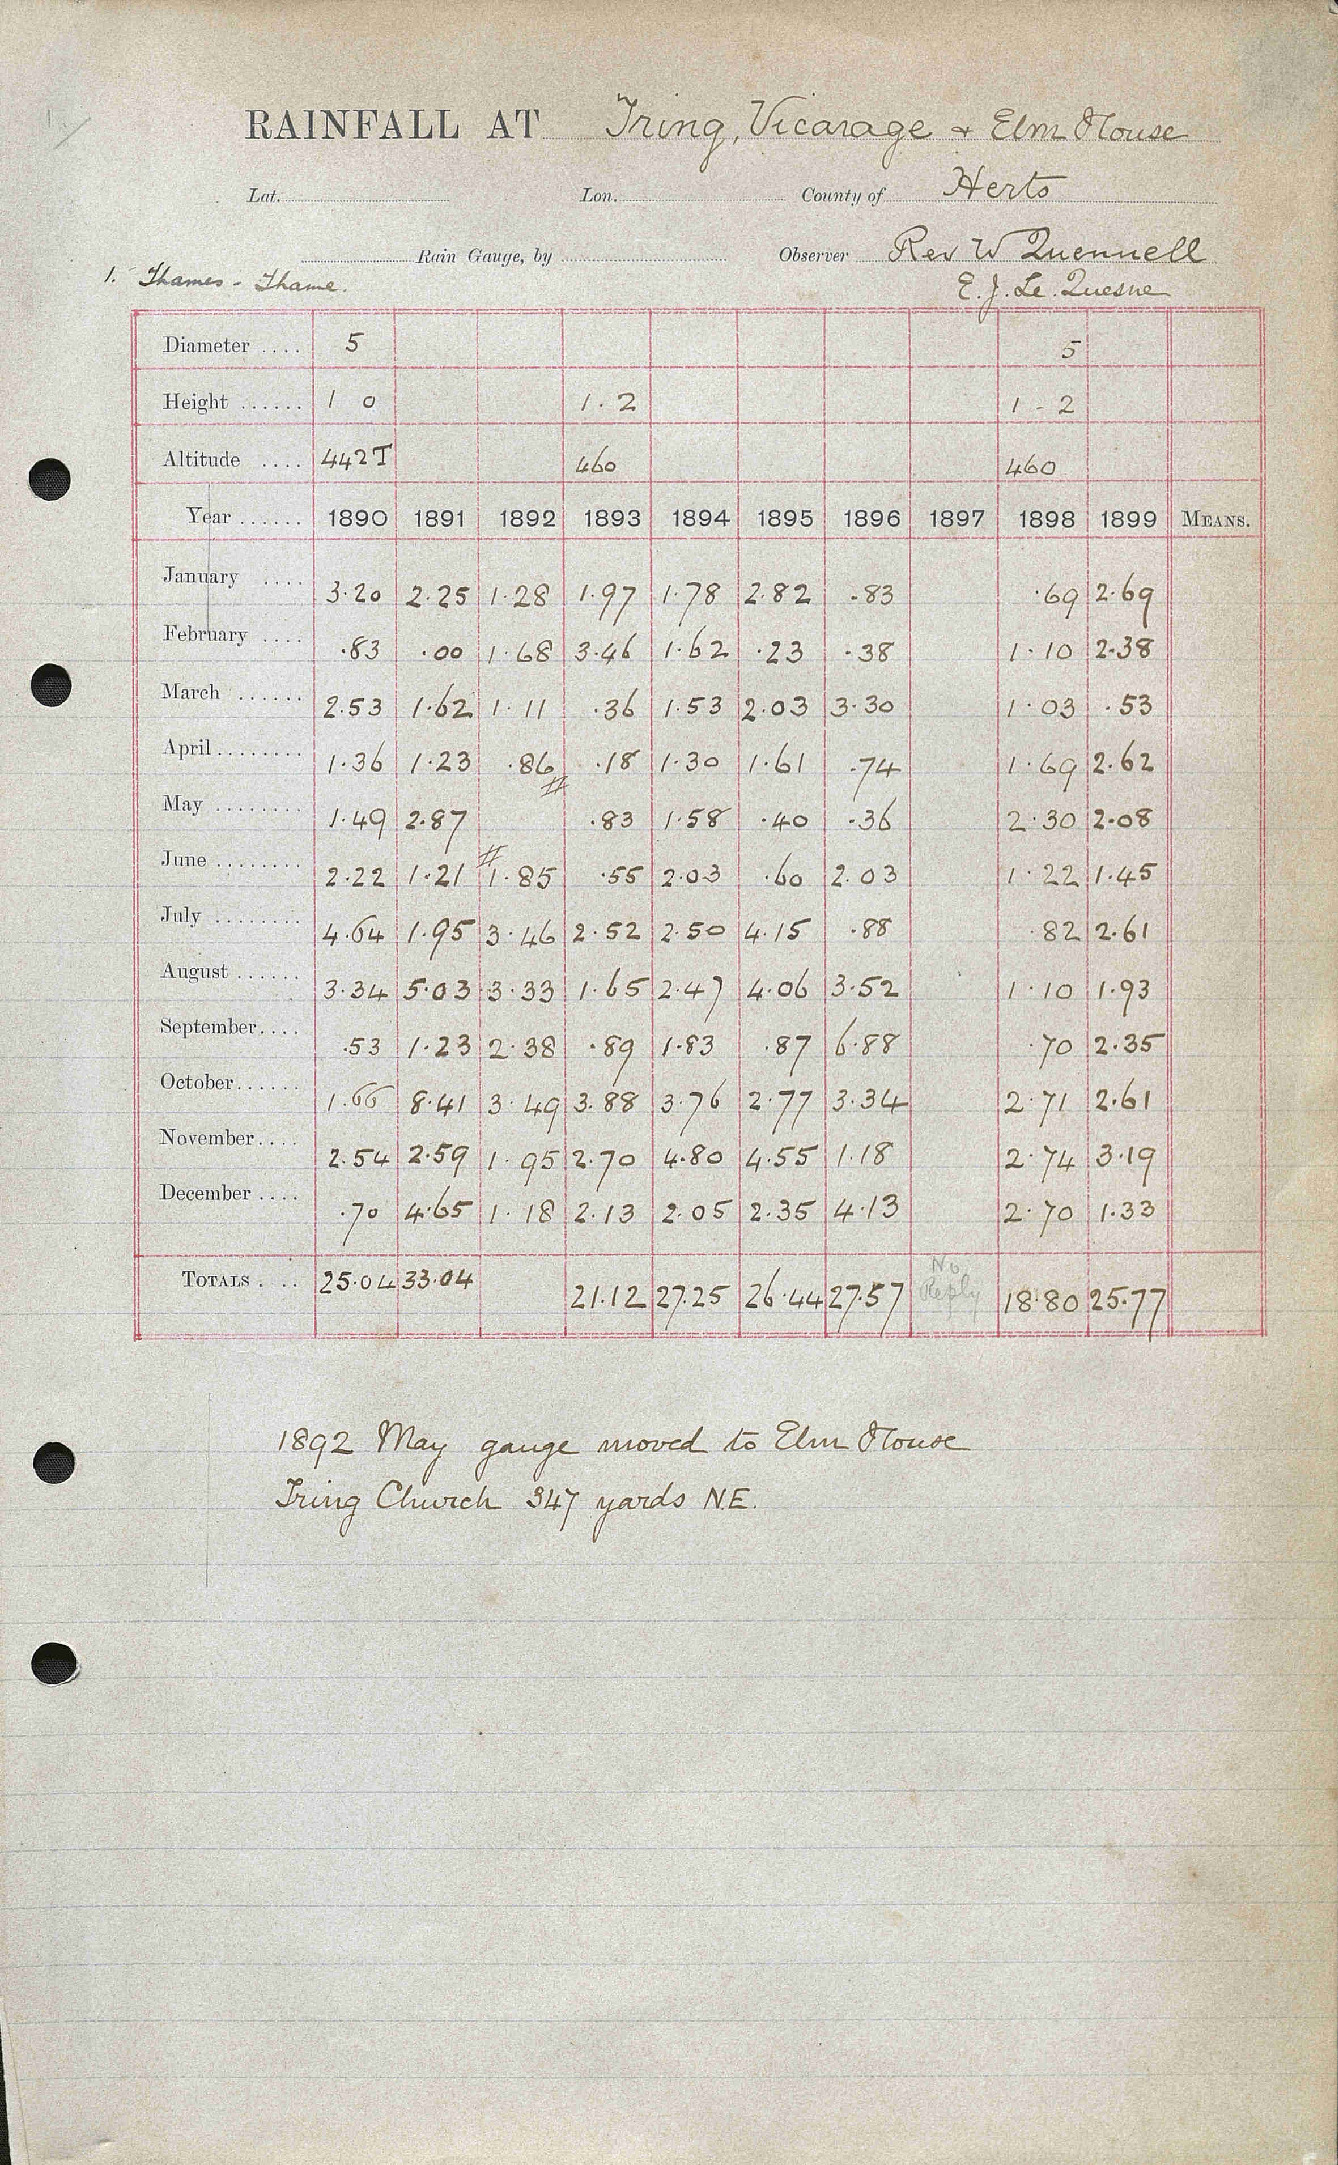 RAINFALL AT Tring, Vicarage & Elm House
Lat. Lon. County of Herts
Rain Gauge, by Observer Rev W Quennell
1. Thames - Thame. E. J. Le. Quesne
Diameter .... 5 5
Height ...... 1 0 1.2 1-2
Altitude .... 442T 460 460
Year ...... 1890 1891 1892 1893 1894 1895 1896 1897 1898 1899 MEANS.
January .... 3.20 2.25 1.28 1.97 1.78 2.82 .83 .69 2.69
February .... .83 .00 1.68 3.46 1.62 .23 .38 1.10 2.38
March ...... 2.53 1.62 1.11 .36 1.53 2.03 3.30 1.03 .53
April ........ 1.36 1.23 .86 .18 1.30 1.61 .74 1.69 2.62
May ........ 1.49 2.87 # .83 1.58 .40 .36 2.30 2.08
June ........ 2.22 1.21 # 1.85 .55 2.03 .60 2.03 1.22 1.45
July ........ 4.64 1.95 3.46 2.52 2.50 4.15 .88 .82 2.61
August ...... 3.34 5.03 3.33 1.65 2.47 4.06 3.52 1.10 1.93
September.... .53 1.23 2.38 .89 1.83 .87 6.88 .70 2.35
October...... 1.66 8.41 3.49 3.88 3.76 2.77 3.34 2.71 2.61
November.... 2.54 2.59 1.95 2.70 4.80 4.55 1.18 2.74 3.19
December .... .70 4.65 1.18 2.13 2.05 2.35 4.13 2.70 1.33
TOTALS .... 25.04 33.04 21.12 27.25 26.44 27.57 No Reply 18.80 25.77
1892 May gauge moved to Elm House
Tring Church 347 yards N.E.